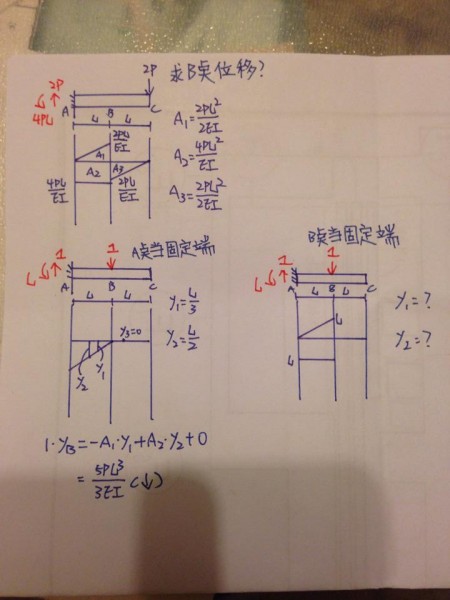 2P
求B点位移?
2P
4PL
A
B
C
L
L
2PL/EI
A1
A2
A3
4PL/EI
2PL/EI
A1=2PL²/2EI
A2=4PL²/EI
A3=2PL²/2EI
A点当固定端
1
1
L
A
B
C
L
L
y3=0
y2
y1
y1=L/3
y2=L/2
1·yB=-A1·y1+A2·y2+0
=5PL³/3EI(↓)
B点当固定端
1
1
L
A
B
C
L
L
L
L
y1=?
y2=?